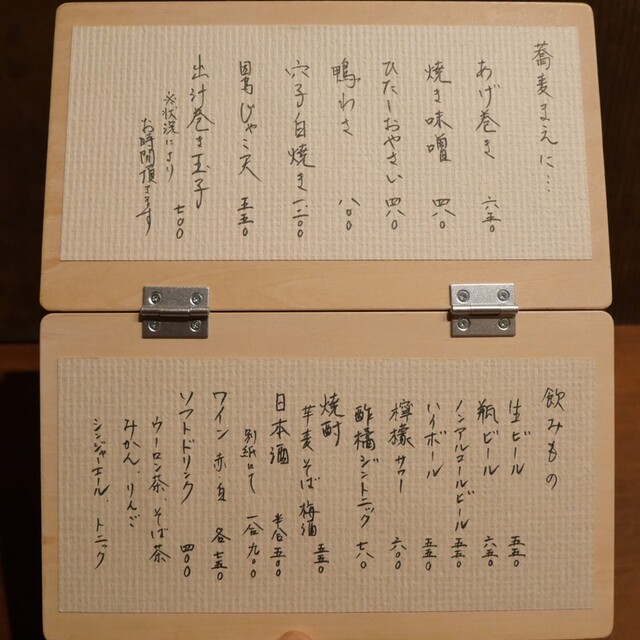 蕎麦まえに…
あげ巻き 六五〇
焼き味噌 四八〇
ひたしおやさい 四八〇
鴨わさ 八〇〇
穴子白焼き 一、二〇〇
じゃこ天 五五〇
出汁巻き玉子 七〇〇
※状況により
お時間頂きます
飲みもの
生ビール 五五〇
瓶ビール 六五〇
ノンアルコールビール 五五〇
ハイボール 五五〇
檸檬サワー 六〇〇
酢橘ジントニック 七八〇
焼酎
芋麦そば 梅酒 五五〇
日本酒 半合 五〇〇
別紙にて 一合 九〇〇
ワイン 赤白 各 七五〇
ソフトドリンク 四〇〇
ウーロン茶、そば茶
みかん、りんご
ジンジャーエール、トニック